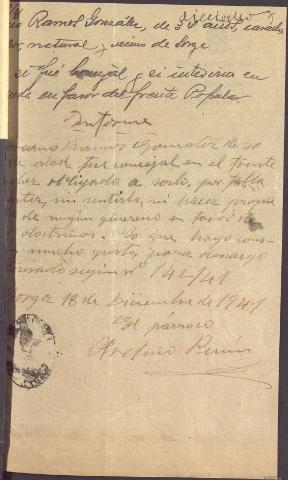 Ramos González, de 30 años, casado
natural y vecino de Jorga
si fué concejal y si intervino en
en favor del frente Popular
Informe
Ramos Gonzalez de 30
edad fue concejal en el frente
obligado a serlo, por falta
ni sentirlo, ni hacer propa
de ningún género en favor de
doctrinas. Lo que hago cons
mucho gusto, para descargo
según nº 142/41
18 de Diciembre de 1941
El párroco